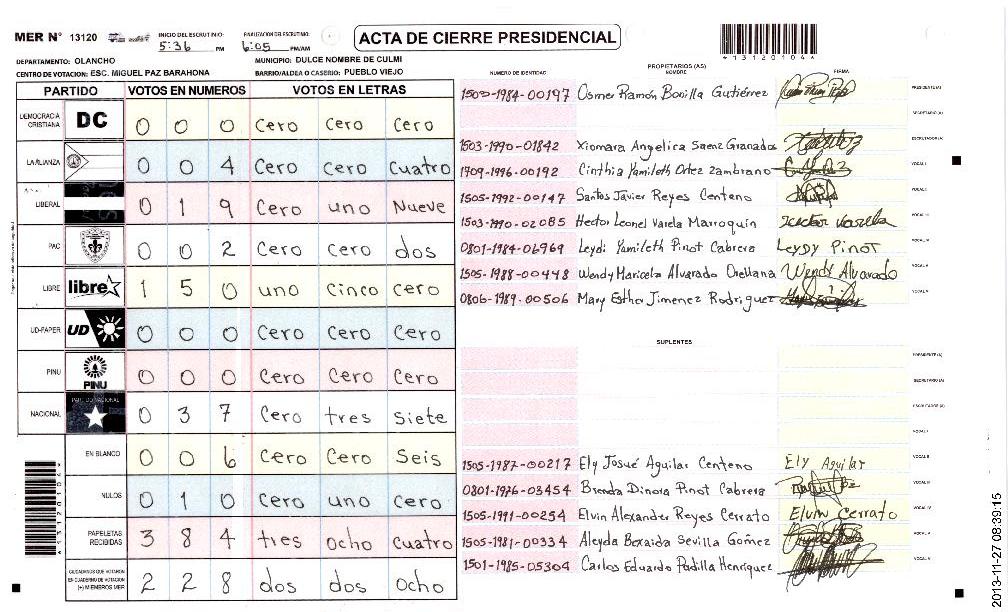 MER N° 13120 INICIO DEL ESCRUTINIO: 5:36 PM FINALIZACION DEL ESCRUTINIO: 6:05 PM/AM
ACTA DE CIERRE PRESIDENCIAL
*13120104*
DEPARTAMENTO: OLANCHO MUNICIPIO: DULCE NOMBRE DE CULMI
CENTRO DE VOTACION: ESC. MIGUEL PAZ BARAHONA BARRIO/ALDEA O CASERIO: PUEBLO VIEJO
PARTIDO VOTOS EN NUMEROS VOTOS EN LETRAS
DEMOCRACIA CRISTIANA DC 0 0 0 Cero Cero Cero
LA ALIANZA 0 0 4 Cero Cero Cuatro
LIBERAL 0 1 9 Cero uno Nueve
PAC 0 0 2 Cero Cero dos
LIBRE libre 1 5 0 uno Cinco Cero
UD-FAPER UD 0 0 0 Cero Cero Cero
PINU PINU 0 0 0 Cero Cero Cero
NACIONAL PARTIDO NACIONAL 0 3 7 Cero tres Siete
EN BLANCO 0 0 6 Cero Cero Seis
NULOS 0 1 0 Cero uno Cero
PAPELETAS RECIBIDAS 3 8 4 tres Ocho Cuatro
CIUDADANOS QUE VOTARON EN CUADERNO DE VOTACION (+) MIEMBROS MER 2 2 8 dos dos Ocho
*13120104*
PROPIETARIOS (AS)
NUMERO DE IDENTIDAD NOMBRE FIRMA
1500-1984-00197 Osmer Ramón Bonilla Gutiérrez PRESIDENTE (A)
SECRETARIO (A)
1503-1990-01842 Xiomara Angelica Saenz Granados ESCRUTADOR (A)
1409-1996-00192 Cinthia Yamileth Ortez Zambrano VOCAL I
1505-1992-00147 Santos Javier Reyes Centeno VOCAL II
1503-1990-02085 Hector Leonel Varela Marroquin Hector Varela VOCAL III
0801-1984-06969 Leydi Yamileth Pinot Cabrera Leydy Pinot VOCAL IV
1505-1988-00448 Wendy Maricela Alvarado Orellana Wendy Alvarado VOCAL V
0806-1989-00506 Mary Esther Jimenez Rodriguez
SUPLENTES
PRESIDENTE (A)
SECRETARIO (A)
ESCRUTADOR (A)
VOCAL I
1505-1987-00217 Ely Josué Aguilar Centeno Ely Aguilar VOCAL II
0801-1976-03454 Brenda Dinora Pinot Cabrera VOCAL III
1505-1991-00254 Elvin Alexander Reyes Cerrato Elvin Cerrato VOCAL IV
1505-1981-00334 Aleyda Bexaida Sevilla Gómez VOCAL V
1501-1985-05304 Carlos Eduardo Padilla Henriquez
2013-11-27 08:39:15